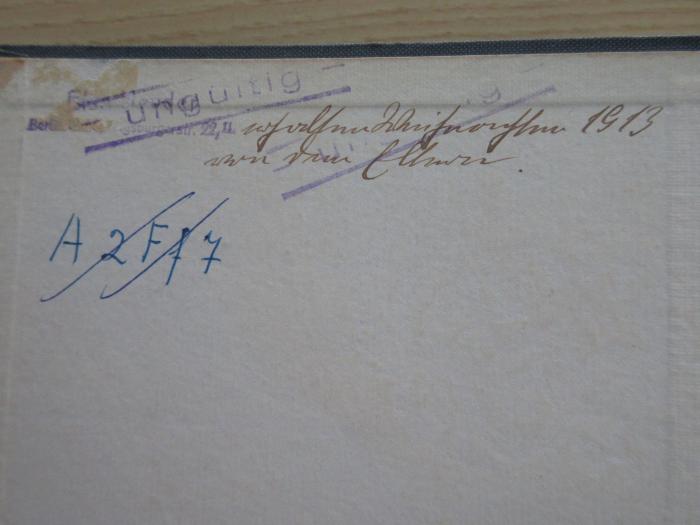 ungültig
Berlin str. 22, II. erhalten Weihnachten 1913
von den Eltern.
A 2 F f 7